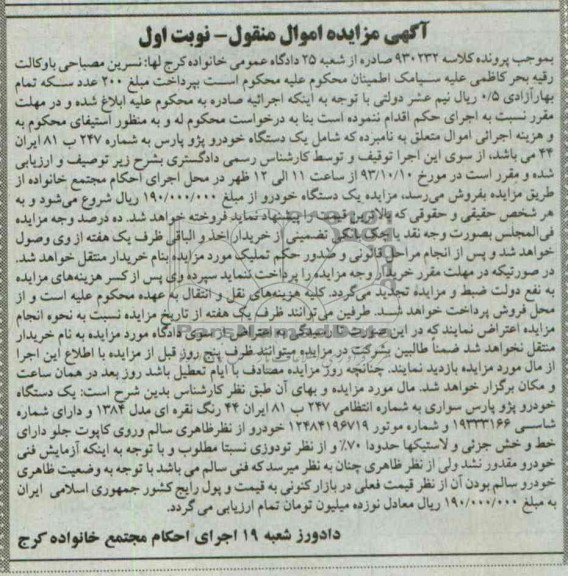 آگهی مزایده اموال منقول - نوبت اول
بموجب پرونده کلاسه ۹۳۰۲۳۲ صادره از شعبه ۲۵ دادگاه عمومی خانواده کرج لها: نسرین مصباحی با وکالت
رقیه بحر کاظمی علیه سیامک اطمینان محکوم علیه محکوم است بپرداخت مبلغ ۲۰۰ عدد سکه تمام
بهار آزادی ۰/۵ ریال نیم عشر دولتی با توجه به اینکه اجرائیه صادره به محکوم علیه ابلاغ شده و در مهلت
مقرر نسبت به اجرای حکم اقدام ننموده است بنا به درخواست محکوم له و به منظور استیفای محکوم به
و هزینه اجرائی اموال متعلق به نامبرده که شامل یک دستگاه خودرو پژو پارس به شماره ۲۴۷ ب ۸۱ ایران
۴۴ می باشد، از سوی این اجرا توقیف و توسط کارشناس رسمی دادگستری بشرح زیر توصیف و ارزیابی
شده و مقرر است در مورخ ۹۳/۱۰/۱۰ از ساعت ۱۱ الی ۱۲ ظهر در محل اجرای احکام مجتمع خانواده از
طریق مزایده بفروش می‌رسد، مزایده یک دستگاه خودرو از مبلغ ۱۹۰/۰۰۰/۰۰۰ ریال شروع می‌شود و به
هر شخص حقیقی و حقوقی که بالاترین قیمت را پیشنهاد نماید فروخته خواهد شد. ده درصد وجه مزایده
فی‌المجلس بصورت وجه نقد یا چک بانکی تضمینی از خریدار اخذ و الباقی ظرف یک هفته از وی وصول
خواهد شد و پس از انجام مراحل قانونی و صدور حکم تملیک مورد مزایده بنام خریدار منتقل خواهد شد.
در صورتیکه در مهلت مقرر خریدار وجه مزایده را پرداخت ننماید سپرده وی پس از کسر هزینه‌های مزایده
به نفع دولت ضبط و مزایده تجدید می‌گردد. کلیه هزینه‌های نقل و انتقال به عهده محکوم علیه است و از
محل فروش پرداخت خواهد شد. طرفین می‌توانند ظرف یک هفته از تاریخ مزایده نسبت به نحوه انجام
مزایده اعتراض نمایند که در این صورت تا رسیدگی به اعتراض از سوی دادگاه مورد مزایده به نام خریدار
منتقل نخواهد شد ضمناً طالبین بشرکت در مزایده میتوانند ظرف پنج روز قبل از مزایده با اطلاع این اجرا
از مال مورد مزایده بازدید نمایند. چنانچه روز مزایده مصادف با ایام تعطیل باشد روز بعد در همان ساعت
و مکان برگزار خواهد شد. مال مورد مزایده و بهای آن طبق نظر کارشناس بدین شرح است: یک دستگاه
خودرو پژو پارس سواری به شماره انتظامی ۲۴۷ ب ۸۱ ایران ۴۴ رنگ نقره ای مدل ۱۳۸۴ و دارای شماره
شاسی ۱۹۳۳۳۱۶۶ و شماره موتور ۱۲۴۸۴۱۹۶۷۱۹ خودرو از نظر ظاهری سالم و روی کاپوت جلو دارای
خط و خش جزئی و لاستیکها حدودا ۷۰٪ و از نظر تودوزی نسبتا مطلوب و با توجه به اینکه آزمایش فنی
خودرو مقدور نشد ولی از نظر ظاهری چنان به نظر میرسد که فنی سالم می باشد با توجه به وضعیت ظاهری
خودرو سالم بودن آن از نظر قیمت فعلی در بازار کنونی به قیمت و پول رایج کشور جمهوری اسلامی ایران
به مبلغ ۱۹۰/۰۰۰/۰۰۰ ریال معادل نوزده میلیون تومان تمام ارزیابی می گردد.
دادورز شعبه ۱۹ اجرای احکام مجتمع خانواده کرج